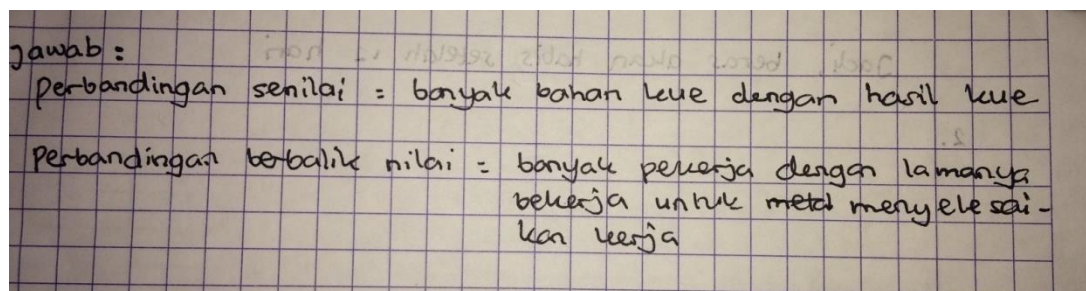 Jawab :
Perbandingan senilai = banyak bahan kue dengan hasil kue
Perbandingan berbalik nilai = banyak pekerja dengan lamanya
bekerja untuk menyelesai-
kan kerja